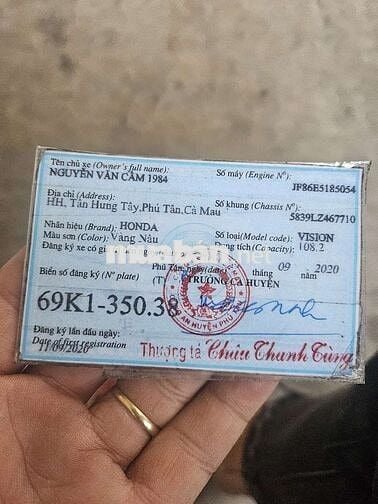 Tên chủ xe (Owner's full name):
NGUYỄN VĂN CẢM 1984
Số máy (Engine Nº):
JF86E5185054
Địa chỉ (Address):
HH, Tân Hưng Tây,Phú Tân,Cà Mau
Số khung (Chassis Nº):
5839LZ467710
Nhãn hiệu (Brand): HONDA
Số loại(Model code): VISION
Màu sơn (Color): Vàng Nâu
Dung tích(Capacity): 108.2
Đăng ký xe có giá
muaban.net
Phú Tân, ngày(date) tháng 09 2020
Biển số đăng ký (Nº plate)
TRƯỞNG CA HUYỆN
69K1-350.38
AN HUYỆN PHÚ
Đăng ký lần đầu ngày:
Date of first registration
11/09/2020
Thượng tá Châu Thanh Tùng